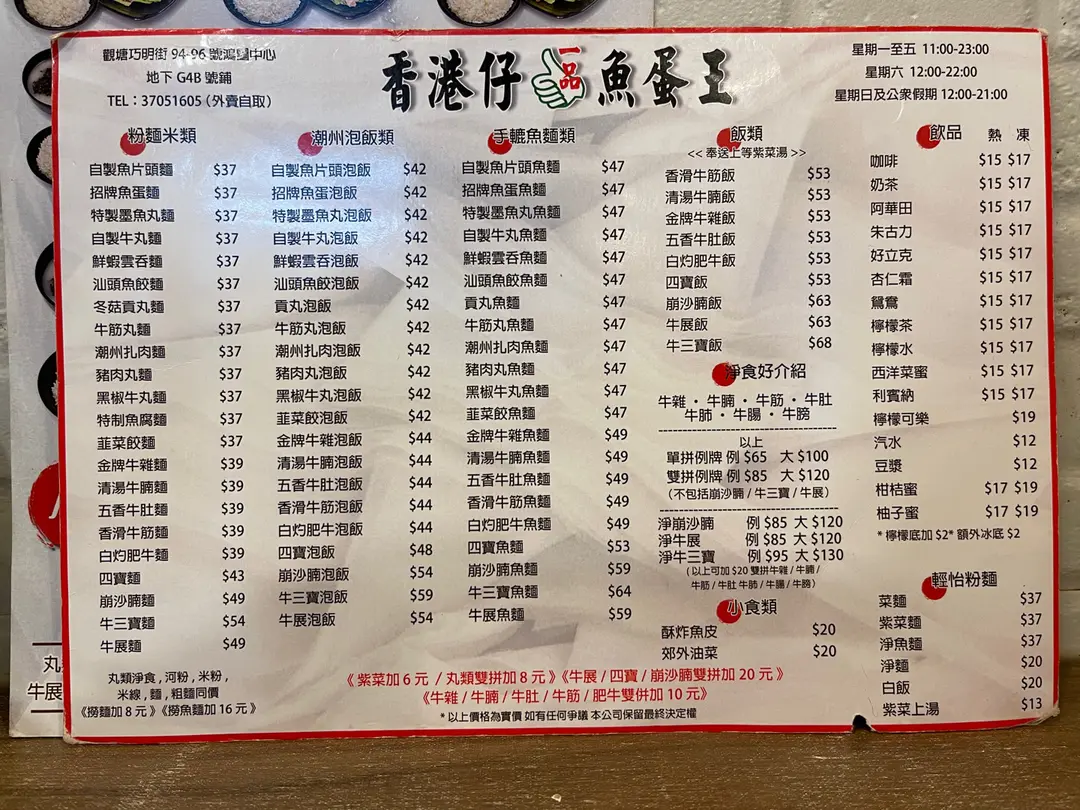 觀塘巧明街 94-96 號鴻圖中心
地下 G4B 號鋪
TEL：37051605（外賣自取）
香港仔一品魚蛋王
星期一至五 11:00-23:00
星期六 12:00-22:00
星期日及公衆假期 12:00-21:00
粉麵米類
自製魚片頭麵 $37
招牌魚蛋麵 $37
特製墨魚丸麵 $37
自製牛丸麵 $37
鮮蝦雲吞麵 $37
汕頭魚餃麵 $37
冬菇貢丸麵 $37
牛筋丸麵 $37
潮州扎肉麵 $37
豬肉丸麵 $37
黑椒牛丸麵 $37
特制魚腐麵 $37
韮菜餃麵 $37
金牌牛雜麵 $39
清湯牛腩麵 $39
五香牛肚麵 $39
香滑牛筋麵 $39
白灼肥牛麵 $39
四寶麵 $43
崩沙腩麵 $49
牛三寶麵 $54
牛展麵 $49
丸類淨食 , 河粉 , 米粉 ,
米線 , 麵 , 粗麵同價
《撈麵加 8 元》《撈魚麵加 16 元》
潮州泡飯類
自製魚片頭泡飯 $42
招牌魚蛋泡飯 $42
特製墨魚丸泡飯 $42
自製牛丸泡飯 $42
鮮蝦雲吞泡飯 $42
汕頭魚餃泡飯 $42
貢丸泡飯 $42
牛筋丸泡飯 $42
潮州扎肉泡飯 $42
豬肉丸泡飯 $42
黑椒牛丸泡飯 $42
韮菜餃泡飯 $42
金牌牛雜泡飯 $44
清湯牛腩泡飯 $44
五香牛肚泡飯 $44
香滑牛筋泡飯 $44
白灼肥牛泡飯 $44
四寶泡飯 $48
崩沙腩泡飯 $54
牛三寶泡飯 $59
牛展泡飯 $54
手轆魚麵類
自製魚片頭魚麵 $47
招牌魚蛋魚麵 $47
特製墨魚丸魚麵 $47
自製牛丸魚麵 $47
鮮蝦雲吞魚麵 $47
汕頭魚餃魚麵 $47
貢丸魚麵 $47
牛筋丸魚麵 $47
潮州扎肉魚麵 $47
豬肉丸魚麵 $47
黑椒牛丸魚麵 $47
韮菜餃魚麵 $47
金牌牛雜魚麵 $49
清湯牛腩魚麵 $49
五香牛肚魚麵 $49
香滑牛筋魚麵 $49
白灼肥牛魚麵 $49
四寶魚麵 $53
崩沙腩魚麵 $59
牛三寶魚麵 $64
牛展魚麵 $59
飯類
<< 奉送上等紫菜湯 >>
香滑牛筋飯 $53
清湯牛腩飯 $53
金牌牛雜飯 $53
五香牛肚飯 $53
白灼肥牛飯 $53
四寶飯 $53
崩沙腩飯 $63
牛展飯 $63
牛三寶飯 $68
淨食好介紹
牛雜 ・ 牛腩 ・ 牛筋 ・ 牛肚
牛肺 ・ 牛腸 ・ 牛膀
以上
單拼例牌 例 $65 大 $100
雙拼例牌 例 $85 大 $120
（不包括崩沙腩 / 牛三寶 / 牛展）
淨崩沙腩 例 $85 大 $120
淨牛展 例 $85 大 $120
淨牛三寶 例 $95 大 $130
（以上可加 $20 雙拼牛雜 / 牛腩 /
牛筋 / 牛肚 牛肺 / 牛腸 / 牛膀）
小食類
酥炸魚皮 $20
郊外油菜 $20
飲品 熱 凍
咖啡 $15 $17
奶茶 $15 $17
阿華田 $15 $17
朱古力 $15 $17
好立克 $15 $17
杏仁霜 $15 $17
鴛鴦 $15 $17
檸檬茶 $15 $17
檸檬水 $15 $17
西洋菜蜜 $15 $17
利賓納 $15 $17
檸檬可樂 $19
汽水 $12
豆漿 $12
柑桔蜜 $17 $19
柚子蜜 $17 $19
* 檸檬底加 $2* 額外冰底 $2
輕怡粉麵
菜麵 $37
紫菜麵 $37
淨魚麵 $37
淨麵 $20
白飯 $20
紫菜上湯 $13
《 紫菜加 6 元 / 丸類雙拼加 8 元 》《牛展 / 四寶 / 崩沙腩雙拼加 20 元 》
《牛雜 / 牛腩 / 牛肚 / 牛筋 / 肥牛雙併加 10 元》
* 以上價格為實價 如有任何爭議 本公司保留最終決定權
牛展